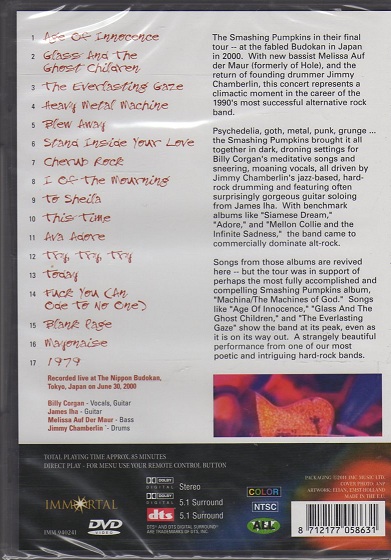 1 Age Of Innocence
2 Glass And The
Ghost Children
3 The Everlasting Gaze
4 Heavy Metal Machine
5 Blew Away
6 Stand Inside Your Love
7 Cherub Rock
8 I Of The Mourning
9 To Sheila
10 This Time
11 Ava Adore
12 Try Try Try
13 Today
14 Fuck You (An
Ode To No One)
15 Blank Page
16 Mayonaise
17 1979
Recorded live at The Nippon Budokan,
Tokyo, Japan on June 30, 2000
Billy Corgan - Vocals, Guitar
James Iha - Guitar
Melissa Auf Der Maur - Bass
Jimmy Chamberlin - Drums
The Smashing Pumpkins in their final
tour -- at the fabled Budokan in Japan
in 2000. With new bassist Melissa Auf
der Maur (formerly of Hole), and the
return of founding drummer Jimmy
Chamberlin, this concert represents a
climactic moment in the career of the
1990's most successful alternative rock
band.
Psychedelia, goth, metal, punk, grunge ...
the Smashing Pumpkins brought it all
together in dark, droning settings for
Billy Corgan's meditative songs and
sneering, moaning vocals, all driven by
Jimmy Chamberlin's jazz-based, hard-
rock drumming and featuring often
surprisingly gorgeous guitar soloing
from James Iha. With benchmark
albums like "Siamese Dream,"
"Adore," and "Mellon Collie and the
Infinite Sadness," the band came to
commercially dominate alt-rock.
Songs from those albums are revived
here -- but the tour was in support of
perhaps the most fully accomplished and
compelling Smashing Pumpkins album,
"Machina/The Machines of God." Songs
like "Age Of Innocence," "Glass And The
Ghost Children," and "The Everlasting
Gaze" show the band at its peak, even as
it is on its way out. A strangely beautiful
performance from one of our most
poetic and intriguing hard-rock bands.
TOTAL PLAYING TIME APPROX. 85 MINUTES
DIRECT PLAY - FOR MENU USE YOUR REMOTE CONTROL BUTTON
IMMORTAL
IMM 940241
DVD
VIDEO
DOLBY
DIGITAL
Stereo
DOLBY
DIGITAL
5.1 Surround
dts
5.1 Surround
DTS" AND DTS DIGITAL SURROUND"
ARE TRADEMARKS OF DTS, INC.
COLOR
NTSC
ALL
MADE IN THE E.U.
8 712177 058631